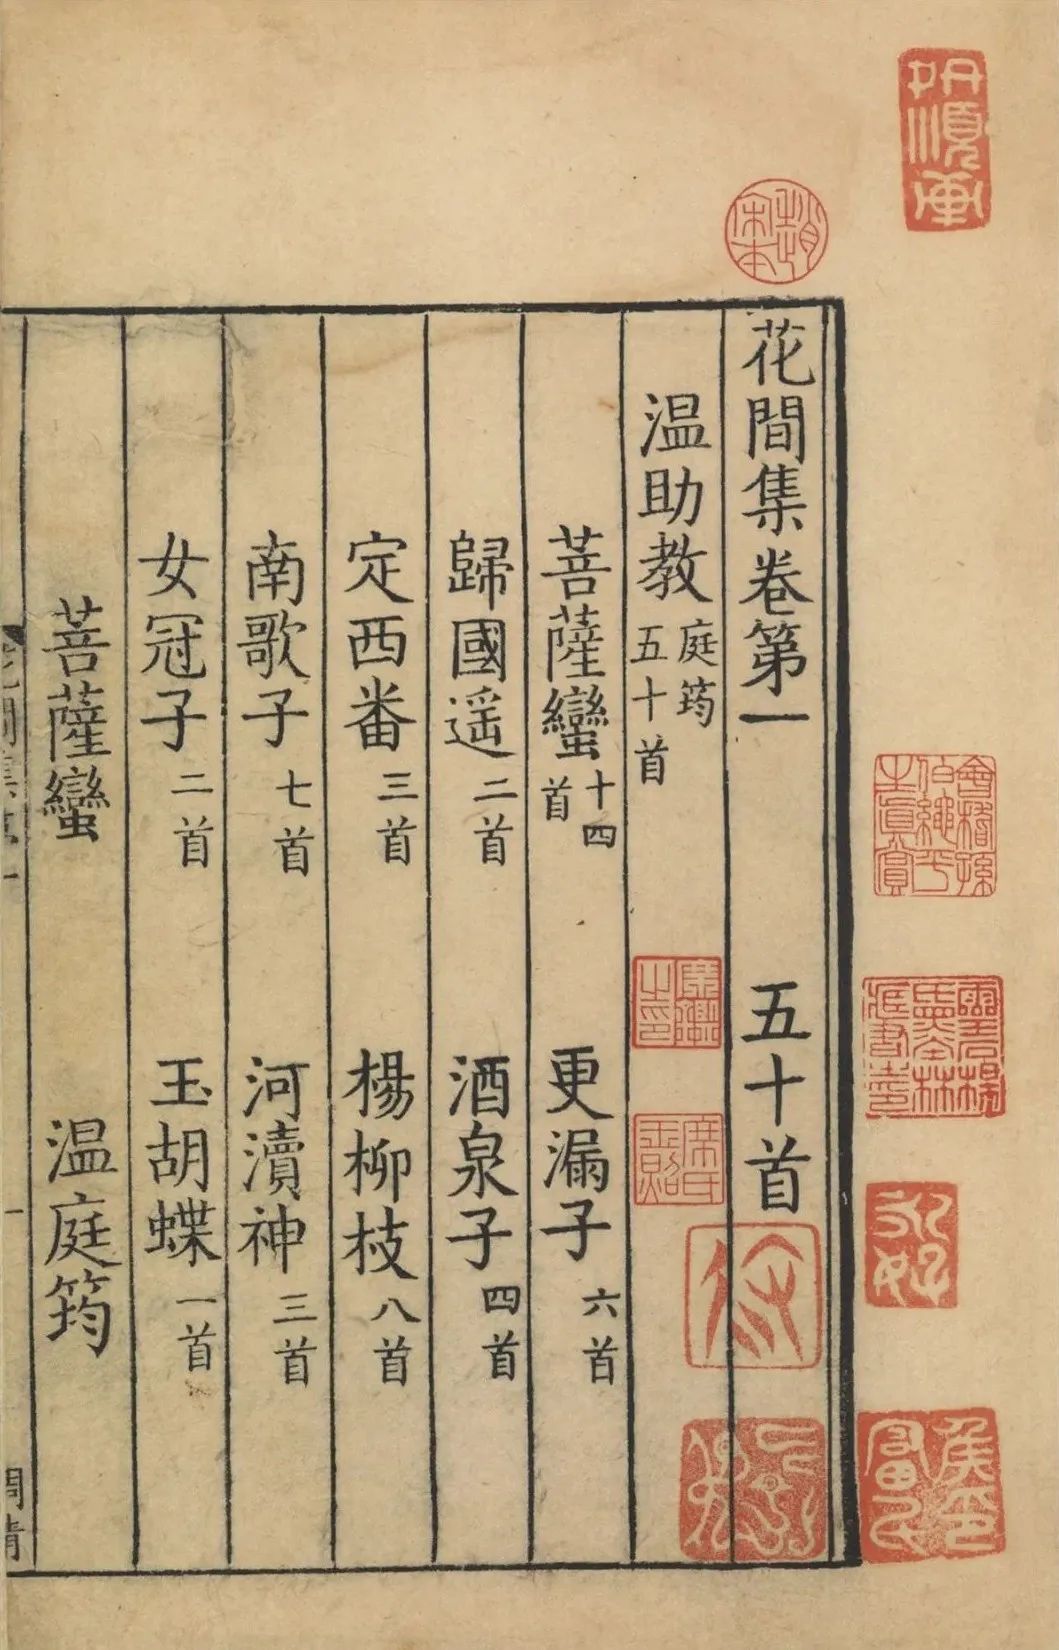 花間集卷第一 五十首
温助教 庭筠 五十首
菩薩蠻 十四首 更漏子 六首
歸國遥 二首 酒泉子 四首
定西番 三首 楊柳枝 八首
南歌子 七首 河瀆神 三首
女冠子 二首 玉胡蝶 一首
菩薩蠻 温庭筠
趙
宋本